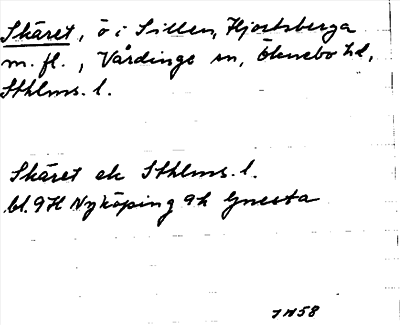 Skäret, ö i Sillen, Hjortsberga
m. fl., Vårdinge sn, Öknebo hd,
Sthlms. l.
Skäret ek Sthlms. l.
bl. 9H Nyköping 9h Gnesta